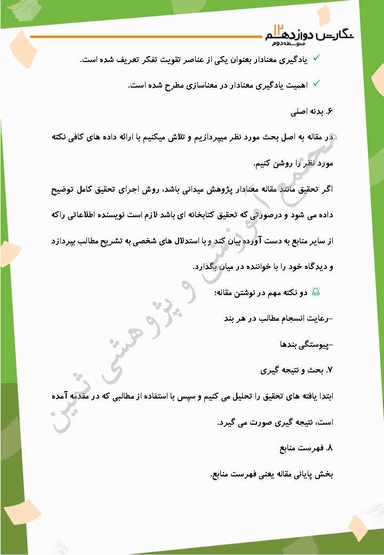 نگارش دوازدهم ۱۲
متوسطه دوم
✓ یادگیری معنادار بعنوان یکی از عناصر تقویت تفکر تعریف شده است.
✓ اهمیت یادگیری معنادار در معناسازی مطرح شده است.
۶. بدنه اصلی
در مقاله به اصل بحث مورد نظر میپردازیم و تلاش میکنیم با ارائه داده های کافی نکته
مورد نظر را روشن کنیم.
اگر تحقیق مانند مقاله معنادار پژوهش میدانی باشد، روش اجرای تحقیق کامل توضیح
داده می شود و درصورتی که تحقیق کتابخانه ای باشد لازم است نویسنده اطلاعاتی راکه
از سایر منابع به دست آورده بیان کند و با استدلال های شخصی به تشریح مطالب بپردازد
و دیدگاه خود را با خواننده در میان بگذارد.
دو نکته مهم در نوشتن مقاله:
–رعایت انسجام مطالب در هر بند
–پیوستگی بندها
۷. بحث و نتیجه گیری
ابتدا یافته های تحقیق را تحلیل می کنیم و سپس با استفاده از مطالبی که در مقدمه آمده
است، نتیجه گیری صورت می گیرد.
۸. فهرست منابع
بخش پایانی مقاله یعنی فهرست منابع.
مجتمع آموزشی و پژوهشی ثمین